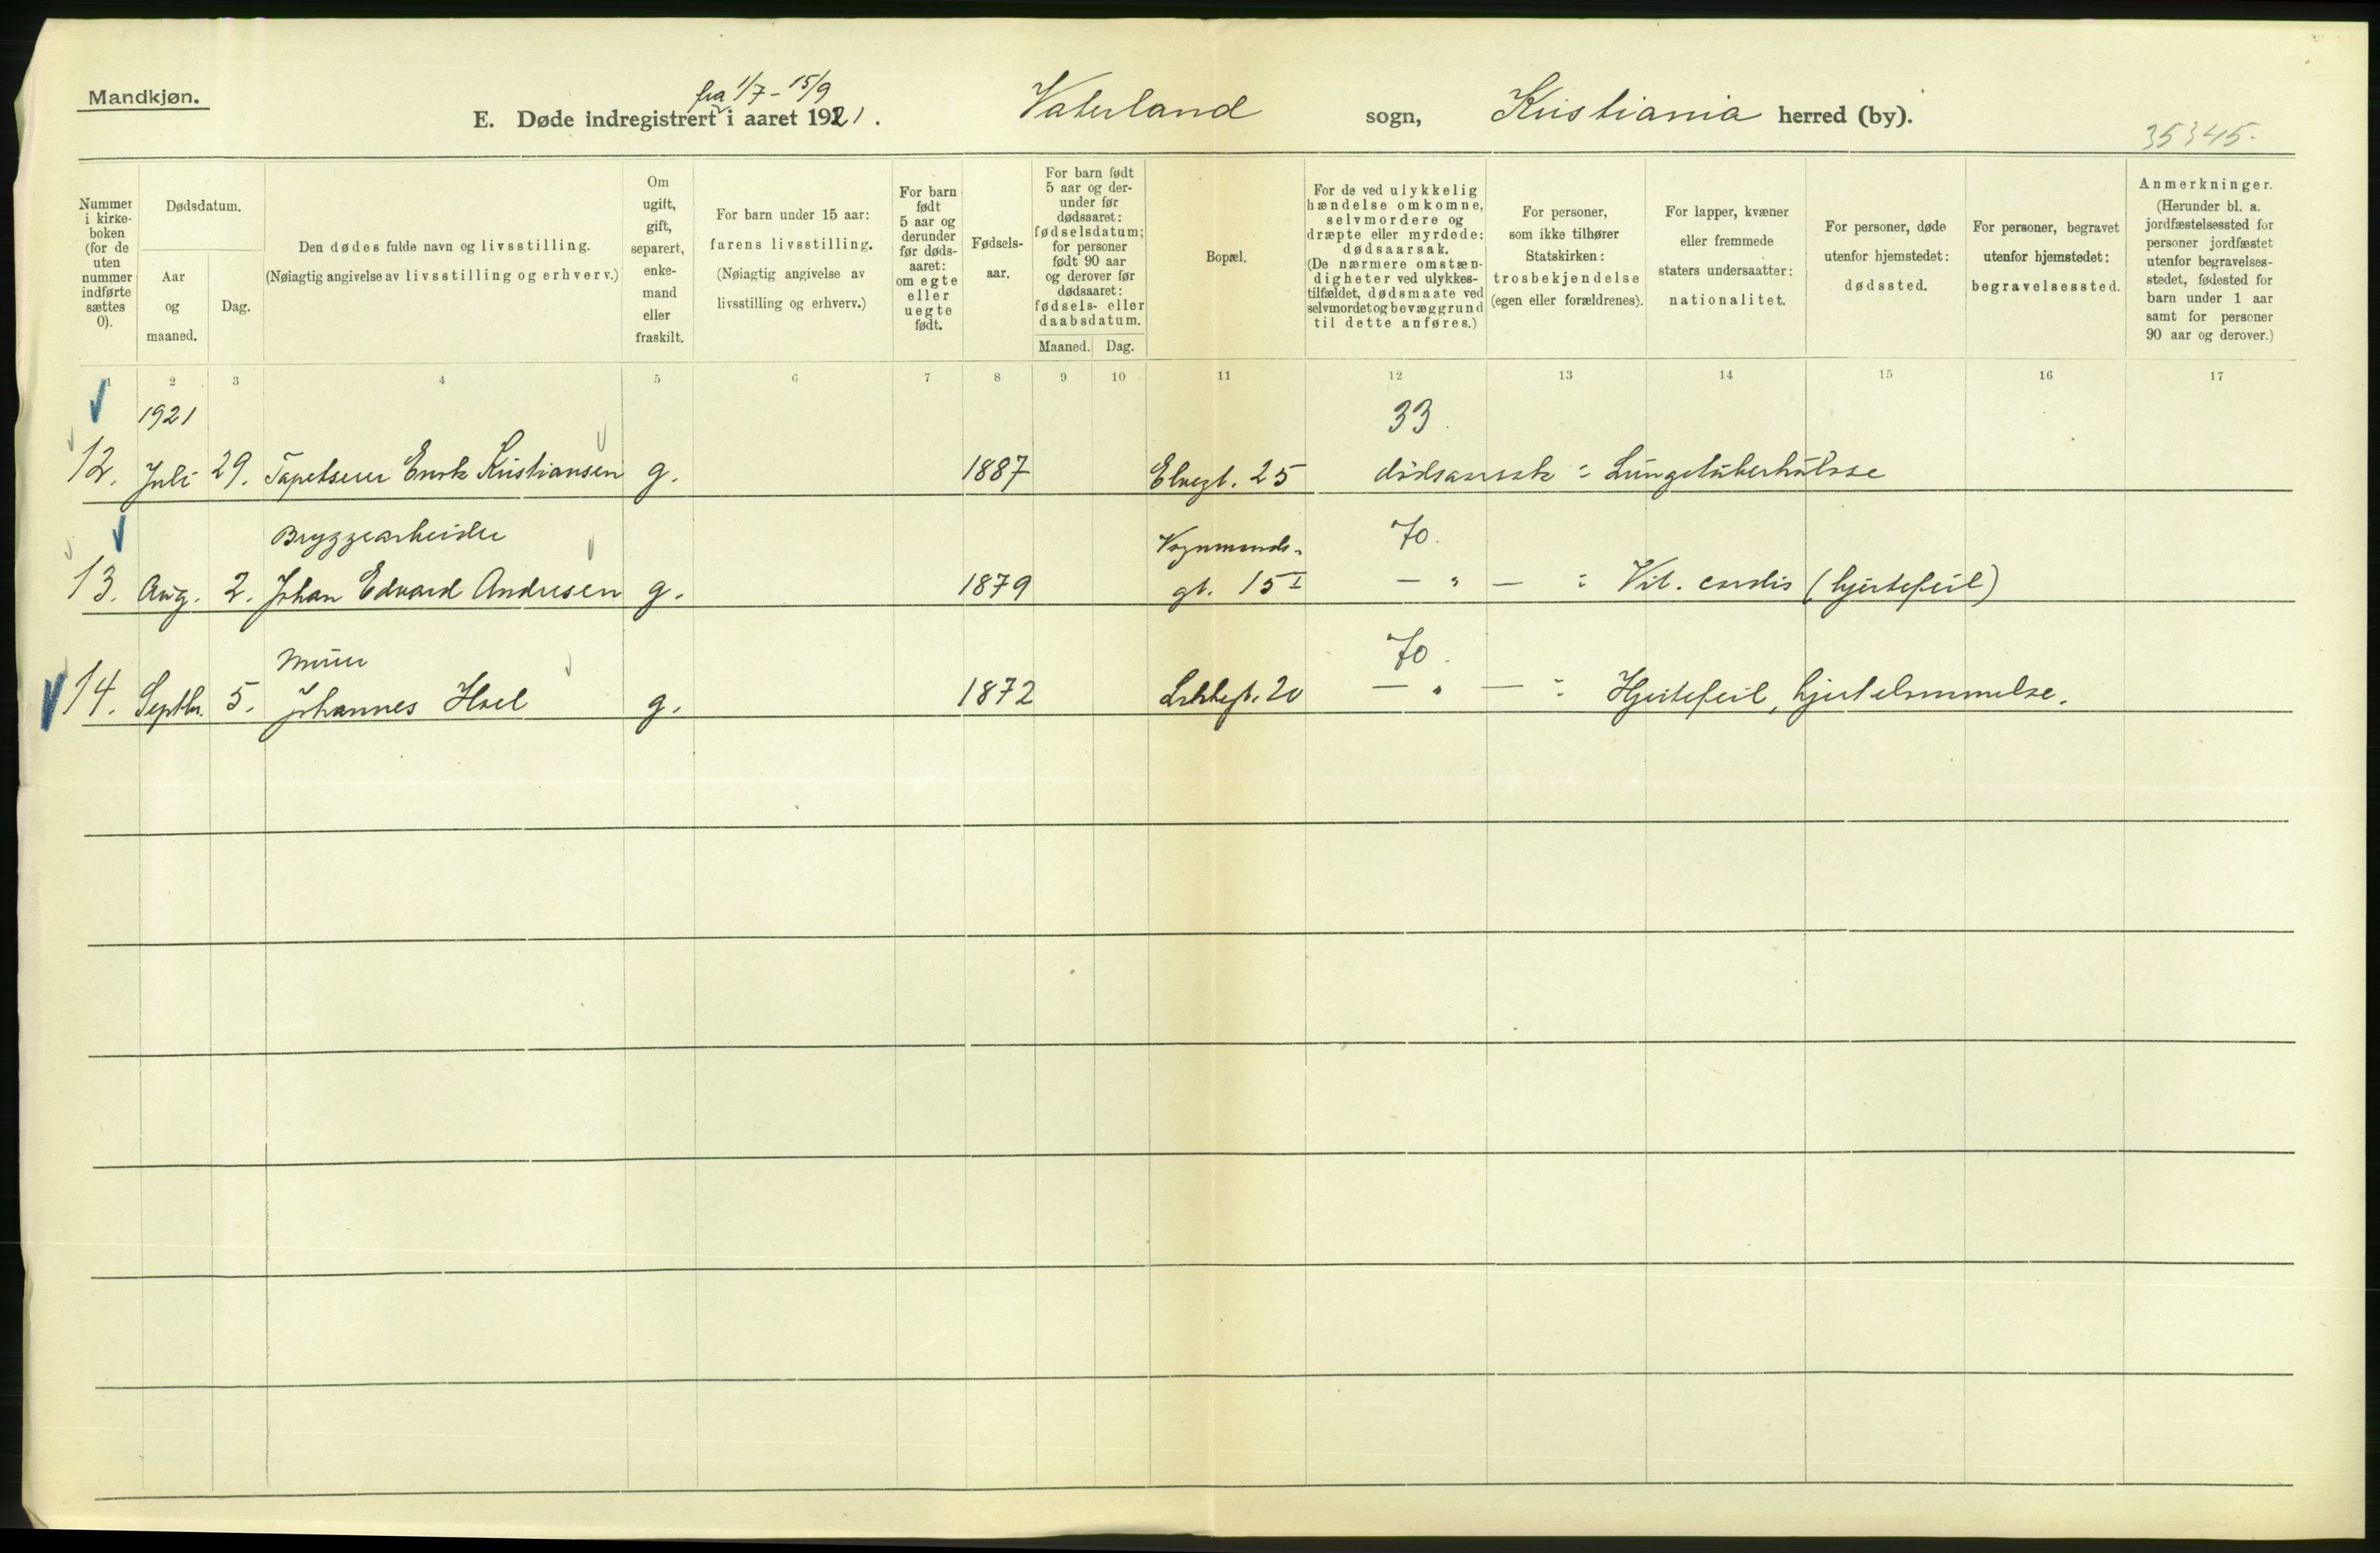 Mandkjøn.
fra 1/7 - 15/9
E. Døde indregistrert i aaret 1921.
Vaterland sogn, Kristiania herred (by).
35345.
Nummer i kirke- boken (for de uten nummer indførte sættes 0).
Dødsdatum.
Aar og maaned.
Dag.
Den dødes fulde navn og livsstilling.
(Nøiagtig angivelse av livsstilling og erhverv.)
Om ugift, gift, separert, enke- mand eller fraskilt.
For barn under 15 aar:
farens livsstilling.
(Nøiagtig angivelse av
livsstilling og erhverv.)
For barn født 5 aar og derunder før døds- aaret: om egte eller uegte født.
Fødsels- aar.
For barn født 5 aar og der- under før dødsaaret: fødselsdatum; for personer født 90 aar og derover før dødsaaret: fødsels- eller daabsdatum.
Maaned. Dag.
Bopæl.
For de ved ulykkelig hændelse omkomne, selvmordere og dræpte eller myrdede: dødsaarsak.
(De nærmere omstæn- digheter ved ulykkes- tilfældet, dødsmaate ved selvmordet og bevæggrund til dette anføres.)
For personer, som ikke tilhører Statskirken: trosbekjendelse (egen eller forældrenes).
For lapper, kvæner eller fremmede staters undersaatter: nationalitet.
For personer, døde utenfor hjemstedet: dødssted.
For personer, begravet utenfor hjemstedet: begravelsessted.
Anmerkninger.
(Herunder bl. a. jordfæstelsessted for personer jordfæstet utenfor begravelses- stedet, fødested for barn under 1 aar samt for personer 90 aar og derover.)
1 2 3 4 5 6 7 8 9 10 11 12 13 14 15 16 17
1921 33.
12. Juli 29. Tapetserer Enok Kristiansen g. 1887 Elvegt. 25 dødsaarsak : Lungetuberkulose
Bryggearbeider Vognmands- 70.
13. Aug. 2. Johan Edvard Andresen g. 1879 gt. 15 I — " — : Vit. cordis (hjertefeil)
Murer 70.
14. Septbr. 5. Johannes Hoel g. 1872 20 — " — : Hjertefeil, hjertelammelse.